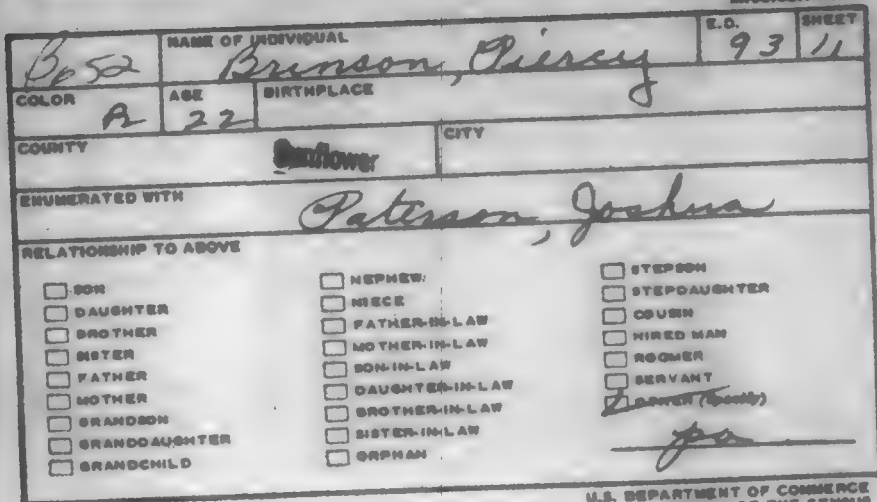 NAME OF INDIVIDUAL E.D. SHEET
B652 Brinson, Piercy 93 11
COLOR AGE BIRTHPLACE
22
COUNTY CITY
Sunflower
ENUMERATED WITH
Paterson, Joshua
RELATIONSHIP TO ABOVE
SON
DAUGHTER
BROTHER
SISTER
FATHER
MOTHER
GRANDSON
GRANDDAUGHTER
GRANDCHILD
NEPHEW
NIECE
FATHER-IN-LAW
MOTHER-IN-LAW
SON-IN-LAW
DAUGHTER-IN-LAW
BROTHER-IN-LAW
SISTER-IN-LAW
ORPHAN
STEPSON
STEPDAUGHTER
COUSIN
HIRED MAN
ROOMER
SERVANT
OTHER (Specify)
pa
U.S. DEPARTMENT OF COMMERCE